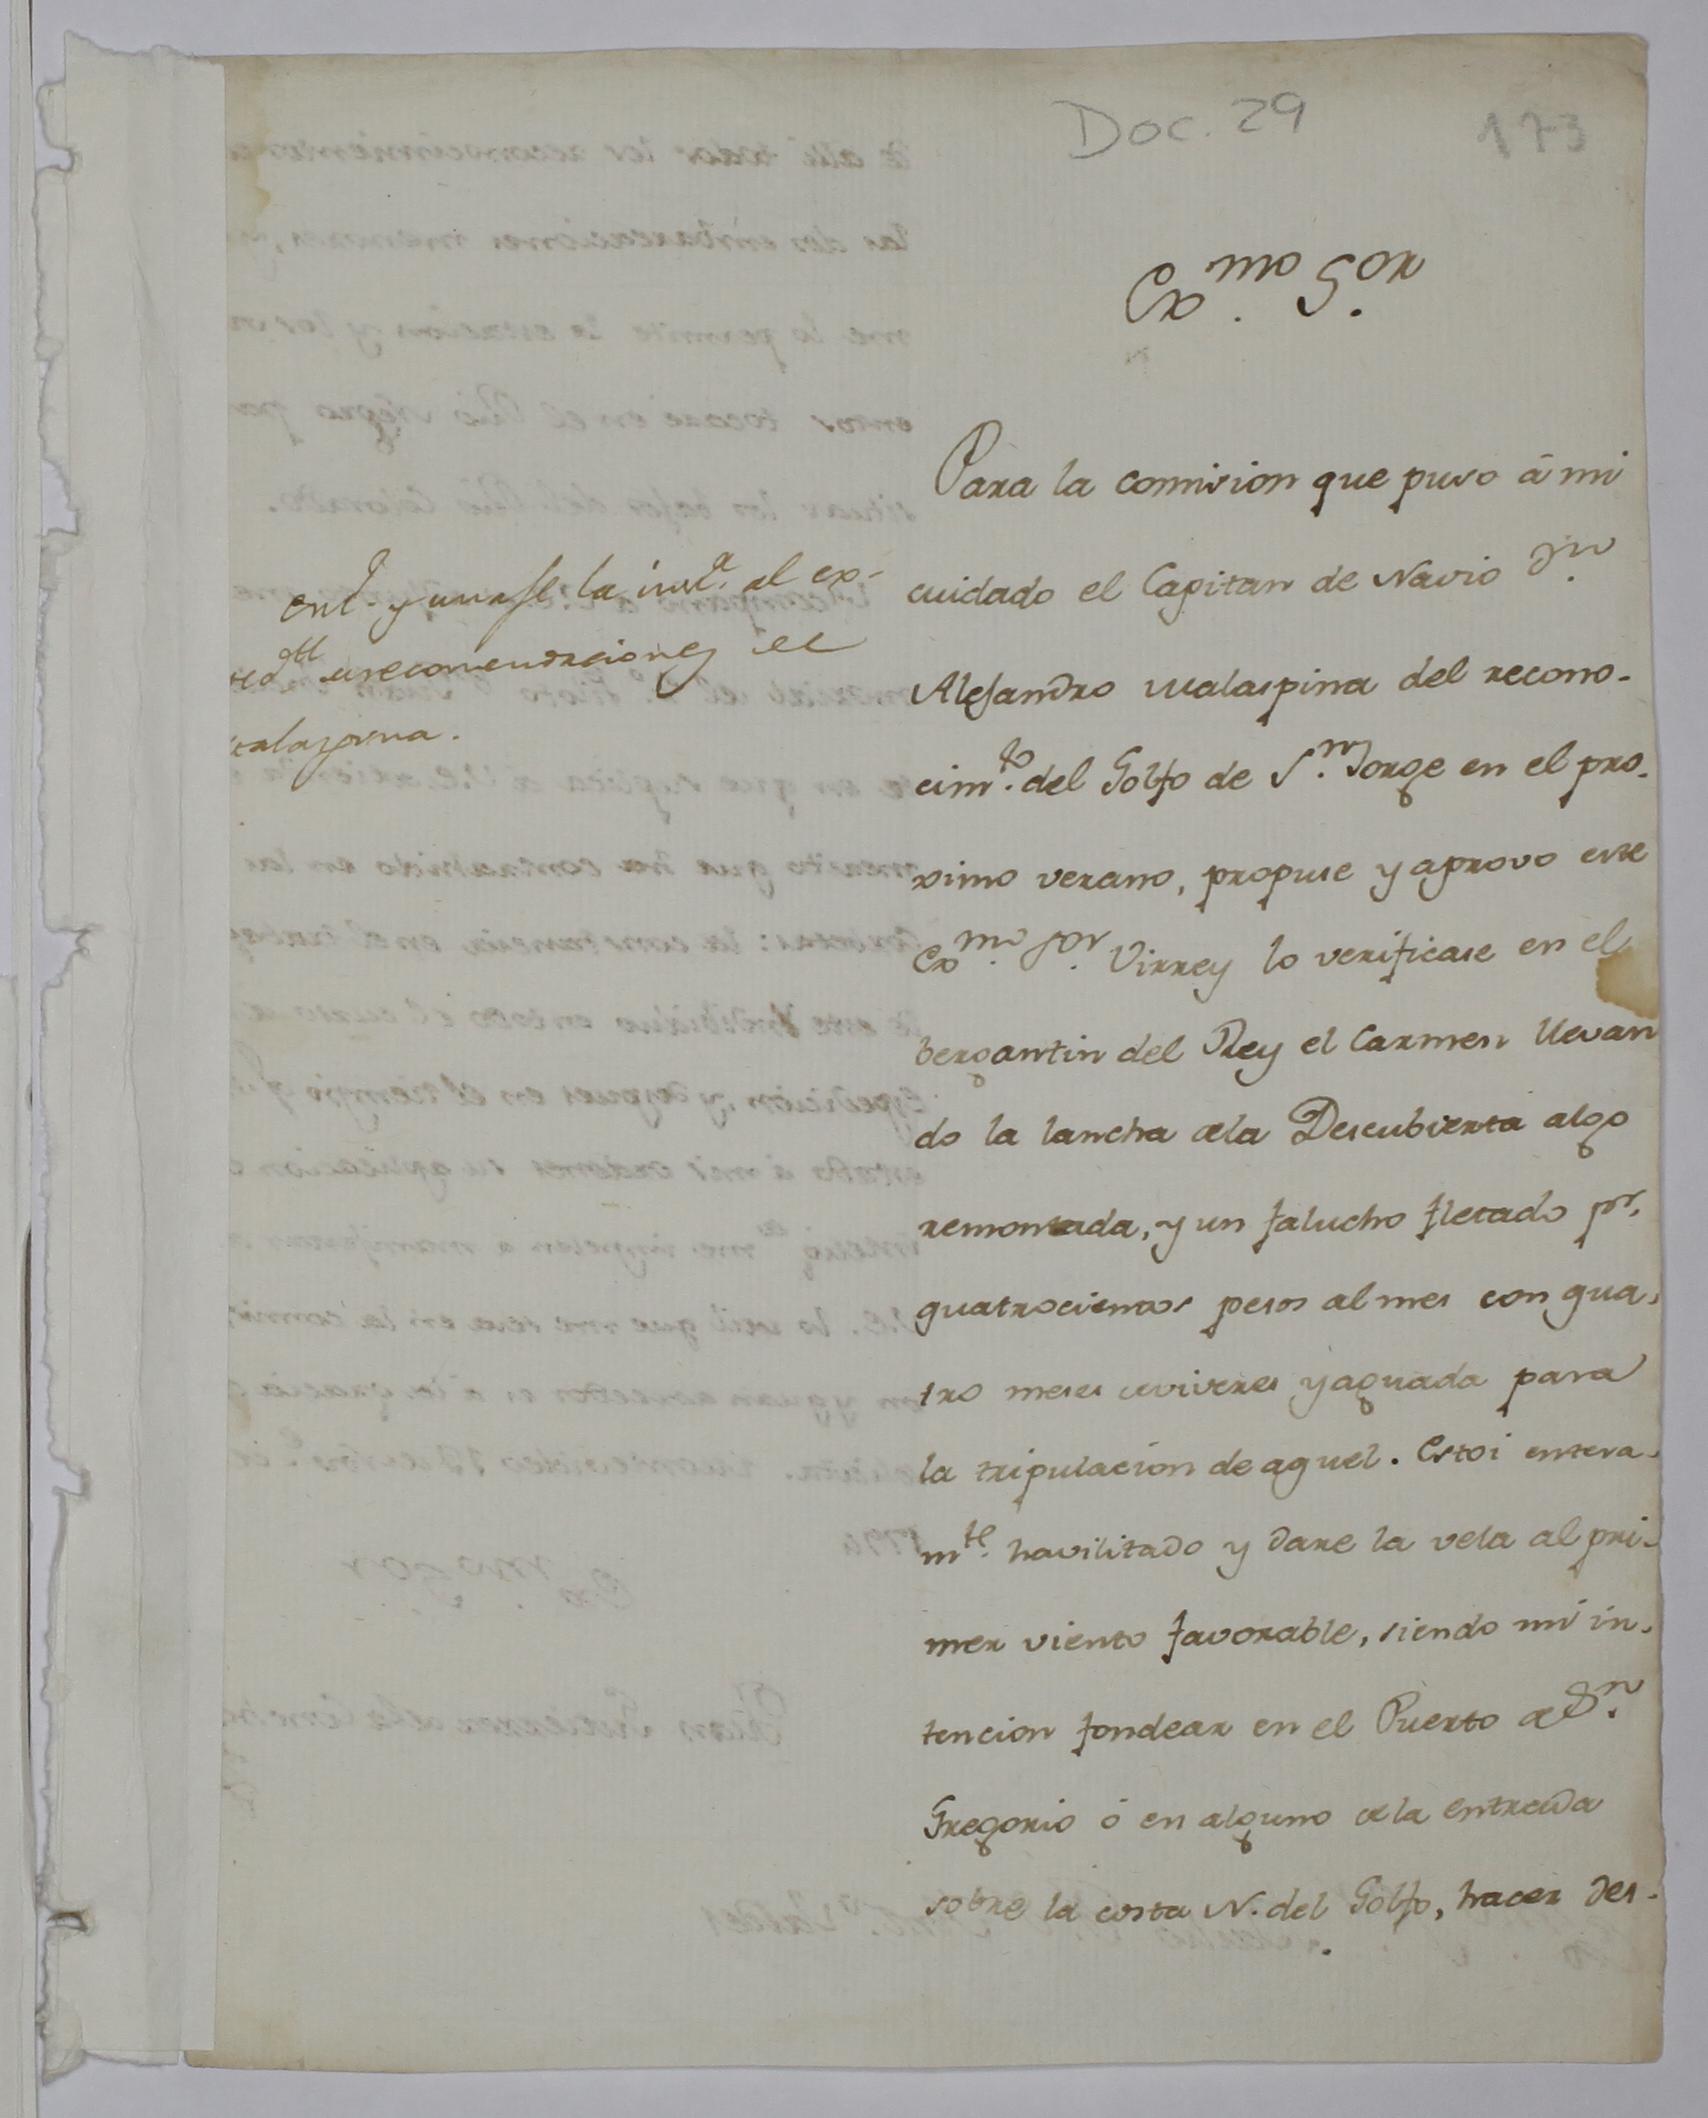 Doc. 29
173
Exmo. Sor.
Para la comision que puso á mi
cuidado el Capitan de Navio Dn.
Alejandro Malaspina del recono-
cimto. del Golfo de Sn. Jorge en el pro-
ximo verano, propuse y aprovo este
Exmo. Sor. Virrey lo verificase en el
bergantin del Rey el Carmen llevan
do la lancha de la Descubierta algo
remontada, y un falucho fletado pr.
quatrocientos pesos al mes con qua-
tro meses de viveres y aguada para
la tripulacion de aquel. Estoi entera-
mte. havilitado y dare la vela al pri-
mer viento favorable, siendo mi in-
tencion fondear en el Puerto de Sn.
Gregorio ó en alguno de la entrada
sobre la costa N. del Golfo, hacer des-
Ent. y unase la insta. al ex-
gtl de recomendaciones de
alaspina.